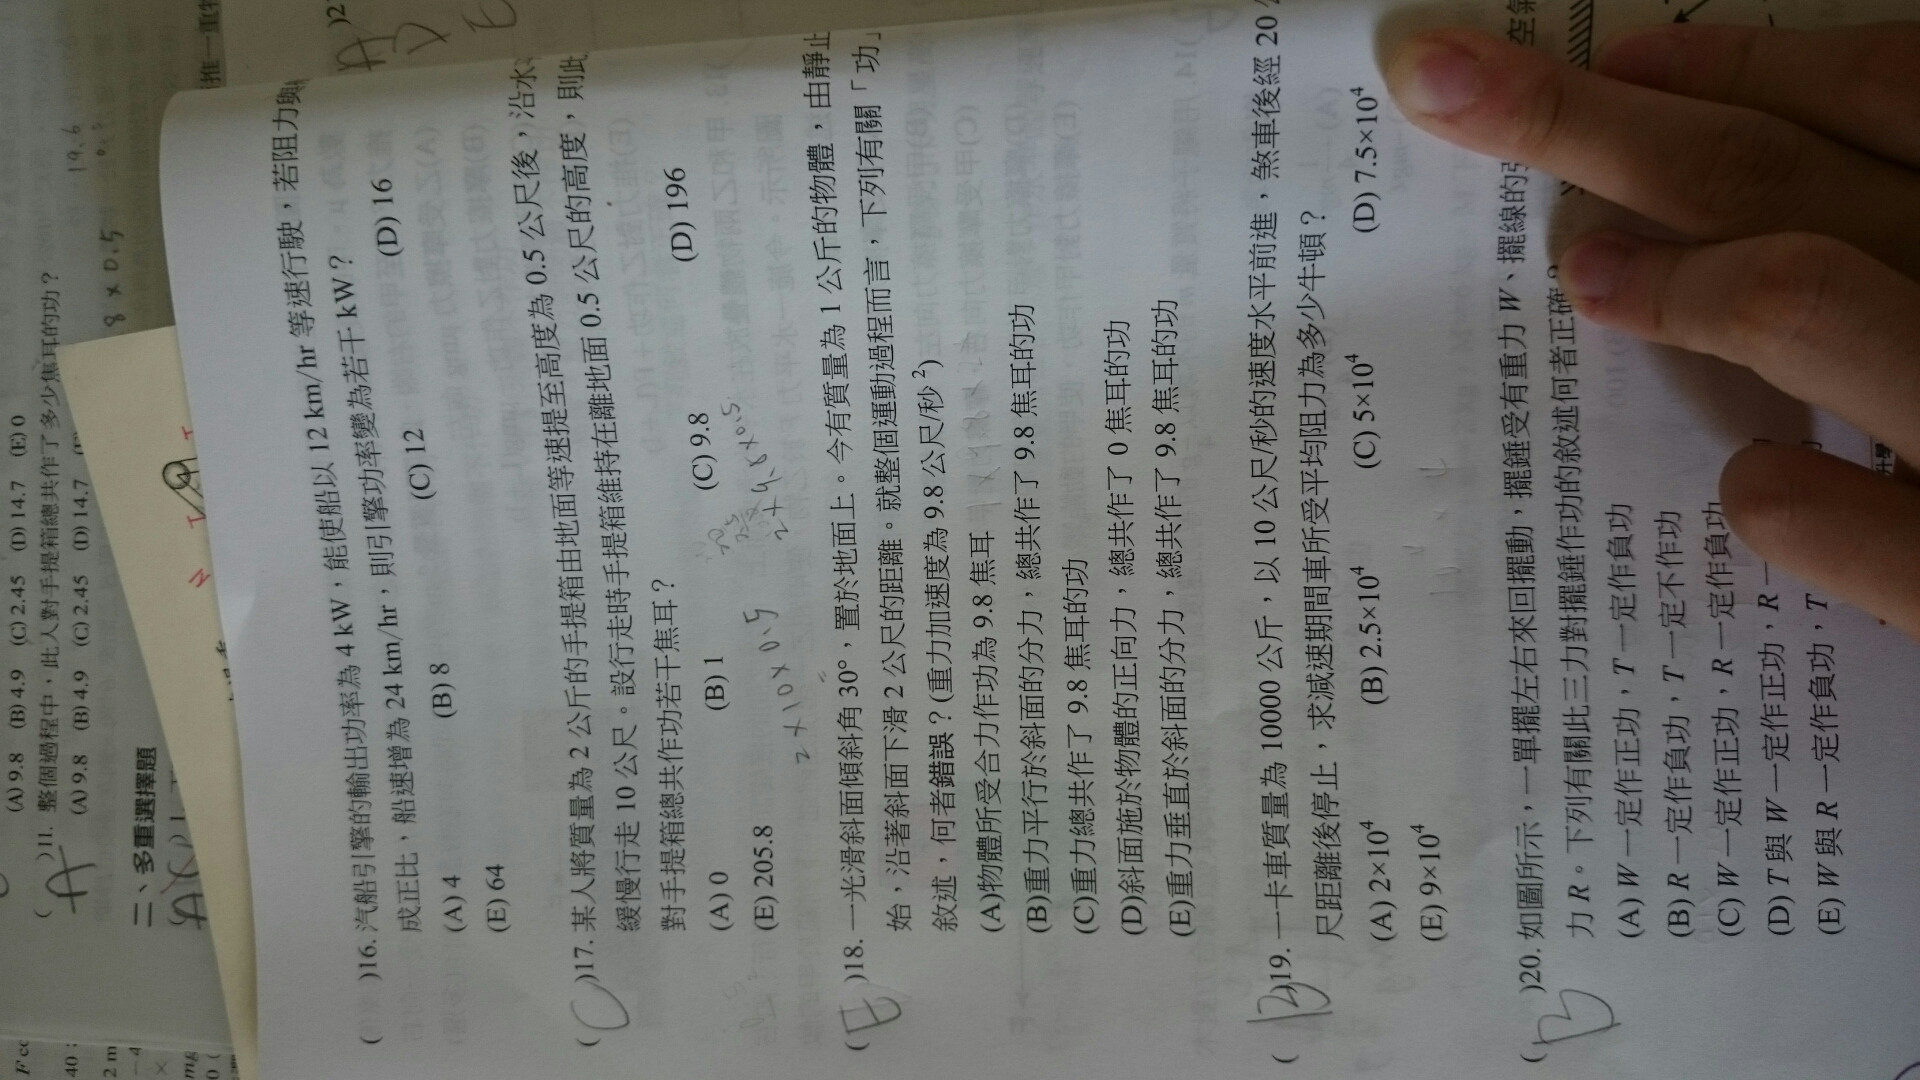 (A) 9.8 (B) 4.9 (C) 2.45 (D) 14.7 (E) 0
( A )11. 整個過程中,此人對手提箱總共作了多少焦耳的功?
(A) 9.8 (B) 4.9 (C) 2.45 (D) 14.7
二、多重選擇題
19.6
8 × 0.5
推一重物
( )16. 汽船引擎的輸出功率為 4 kW,能使船以 12 km/hr 等速行駛,若阻力與
成正比,船速增為 24 km/hr,則引擎功率變為若干 kW?
(A) 4 (B) 8 (C) 12 (D) 16
(E) 64
( C )17. 某人將質量為 2 公斤的手提箱由地面等速提至高度為 0.5 公尺後,沿水
緩慢行走 10 公尺。設行走時手提箱維持在離地面 0.5 公尺的高度,則此
對手提箱總共作功若干焦耳?
(A) 0 (B) 1 (C) 9.8 (D) 196
(E) 205.8
2×10×0.5
2×9.8×0.5
( E )18. 一光滑斜面傾斜角 30°,置於地面上。今有質量為 1 公斤的物體,由靜止
始,沿著斜面下滑 2 公尺的距離。就整個運動過程而言,下列有關「功」
敘述,何者錯誤?(重力加速度為 9.8 公尺/秒²)
(A)物體所受合力作功為 9.8 焦耳
(B)重力平行於斜面的分力,總共作了 9.8 焦耳的功
(C)重力總共作了 9.8 焦耳的功
(D)斜面施於物體的正向力,總共作了 0 焦耳的功
(E)重力垂直於斜面的分力,總共作了 9.8 焦耳的功
( B )19. 一卡車質量為 10000 公斤,以 10 公尺/秒的速度水平前進,煞車後經 20
尺距離後停止,求減速期間車所受平均阻力為多少牛頓?
(A) 2×10⁴ (B) 2.5×10⁴ (C) 5×10⁴ (D) 7.5×10⁴
(E) 9×10⁴
( B )20. 如圖所示,一單擺左右來回擺動,擺錘受有重力 W、擺線的 空氣
力 R。下列有關此三力對擺錘作功的敘述何者正確?
(A) W 一定作正功,T 一定作負功
(B) R 一定作負功,T 一定不作功
(C) W 一定作正功,R 一定作負功
(D) T 與 W 一定作正功,R 一
(E) W 與 R 一定作負功,T